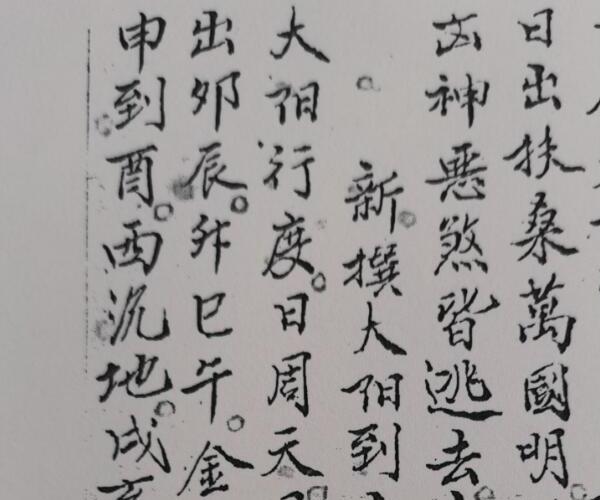 日出扶桑萬國明
凶神惡煞皆逃去
新撰大阳到
大阳行度。日周天
出卯辰。升巳午。金
申到酉。西沉地。成